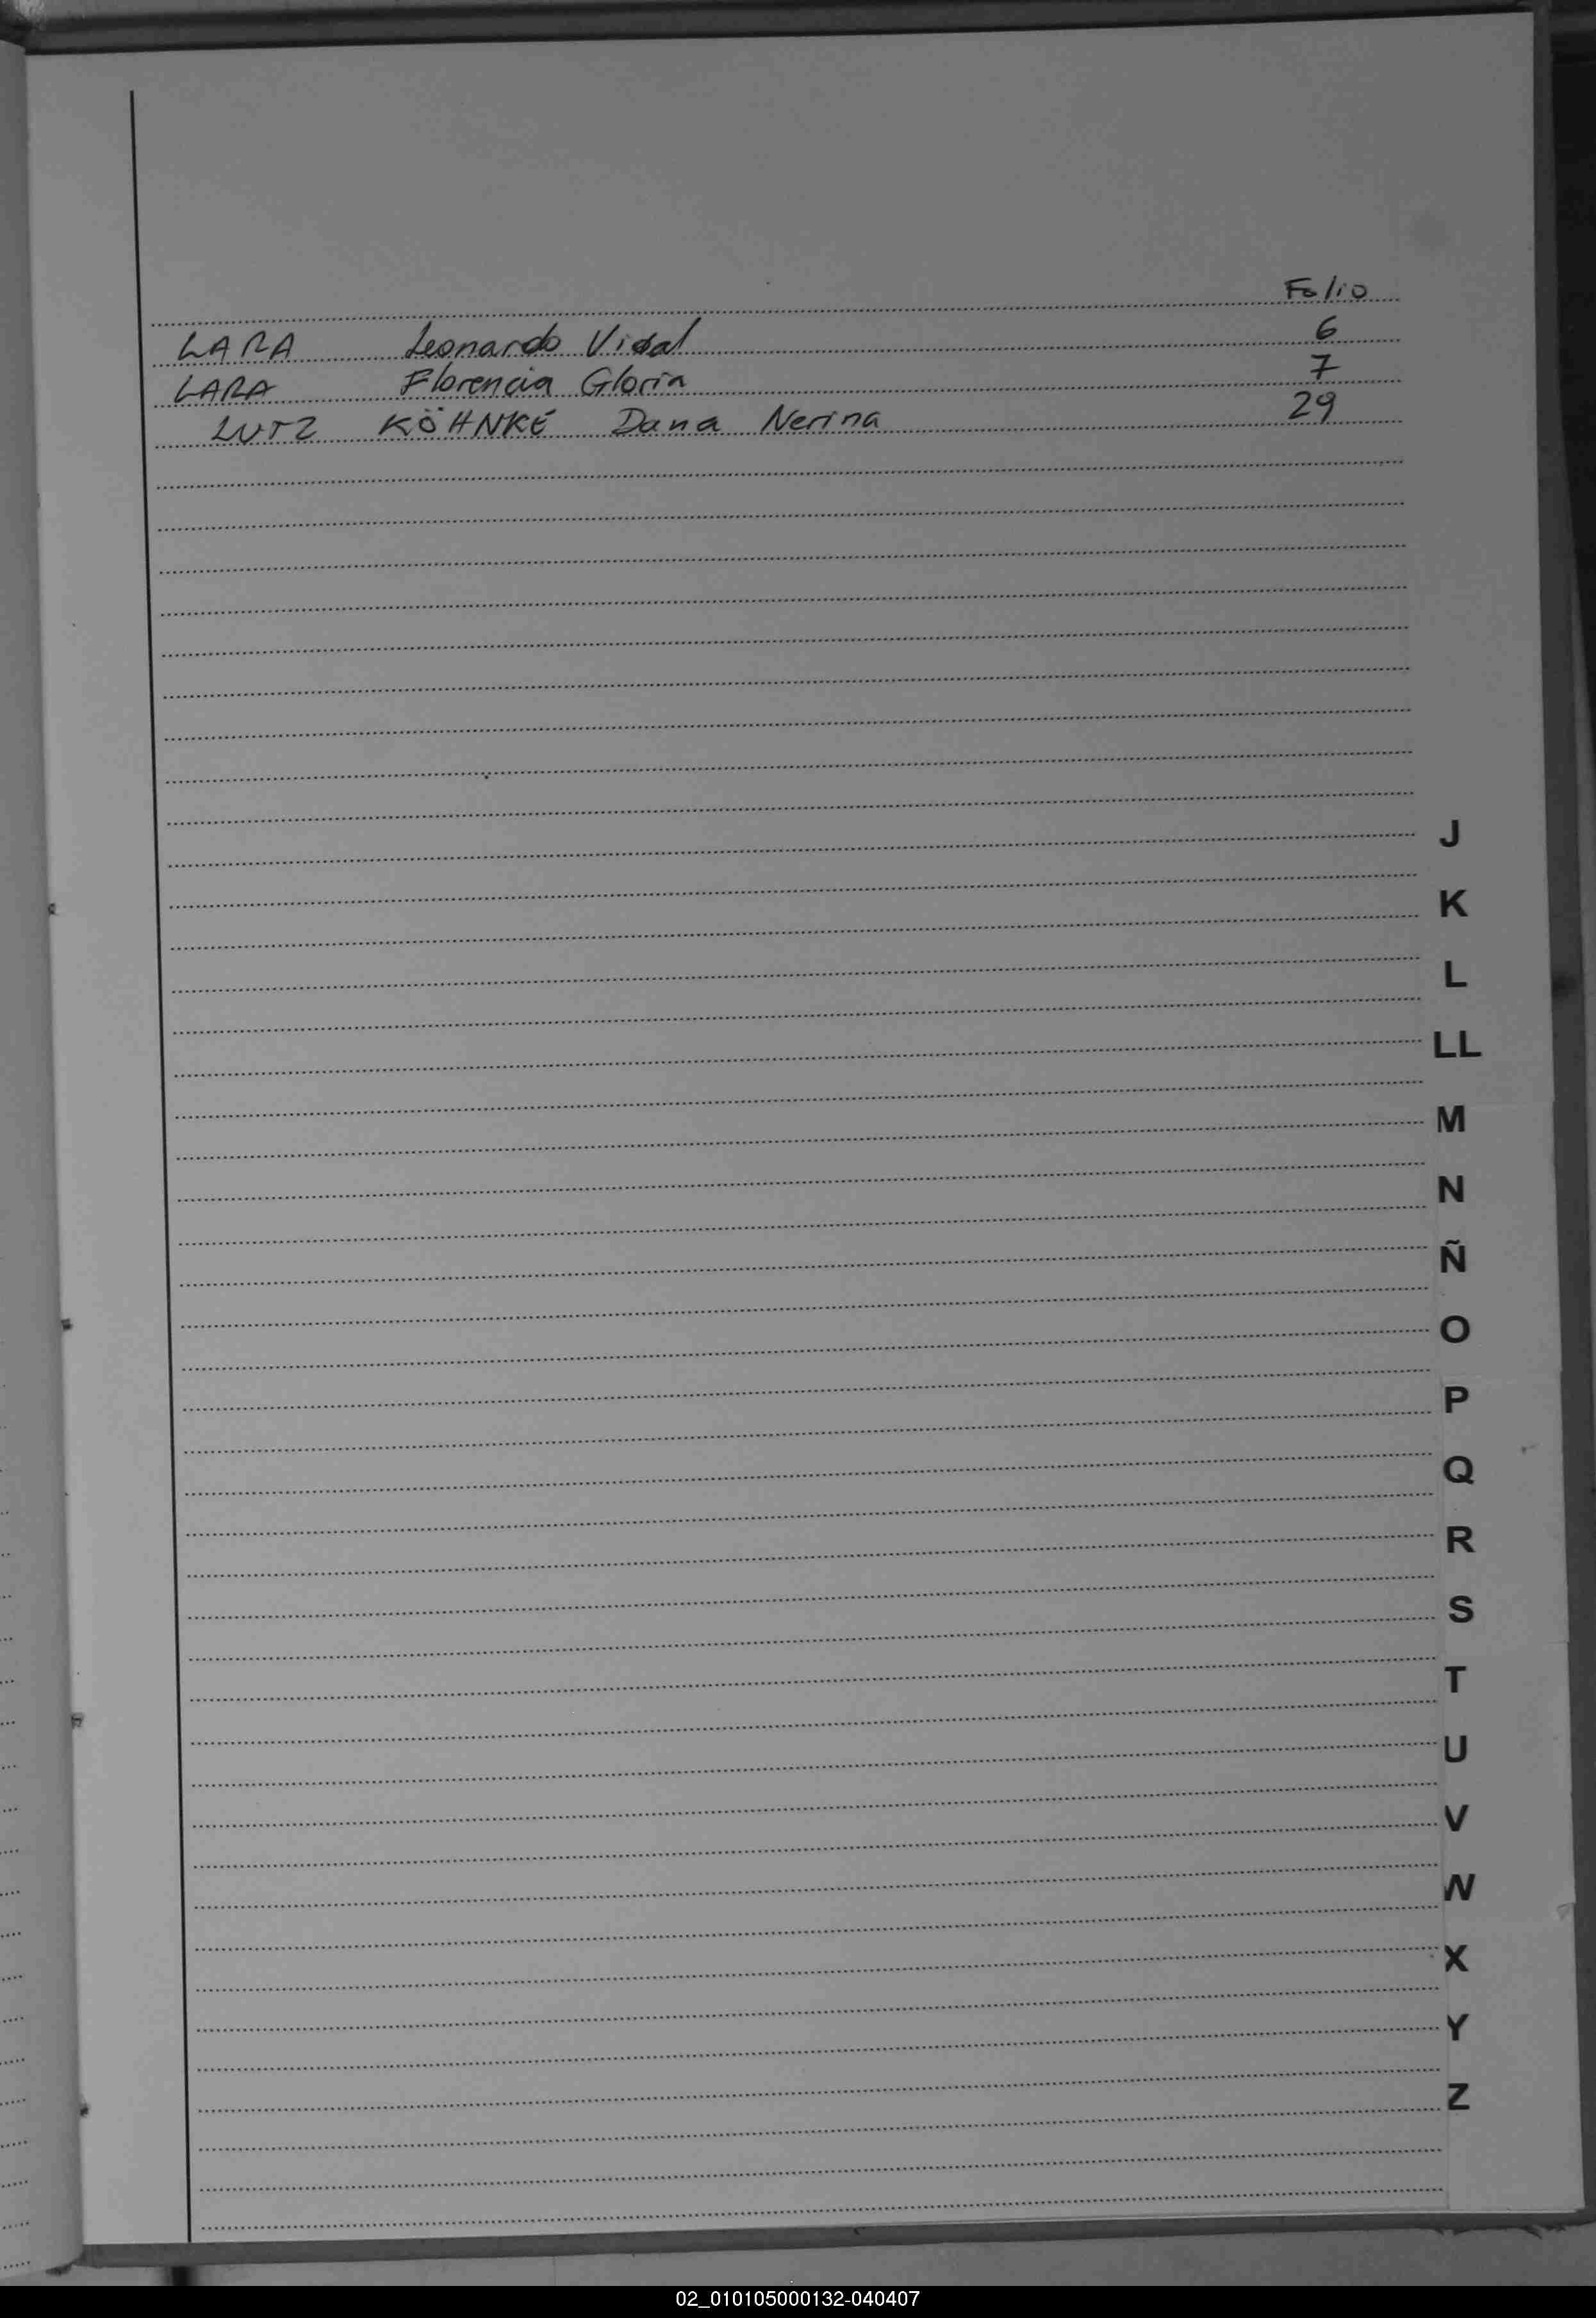 Folio
LARA Leonardo Vidal 6
LARA Florencia Gloria 7
LUTZ KÖHNKE Dana Nerina 29
J
K
L
LL
M
N
Ñ
O
P
Q
R
S
T
U
V
W
X
Y
Z
02_010105000132-040407